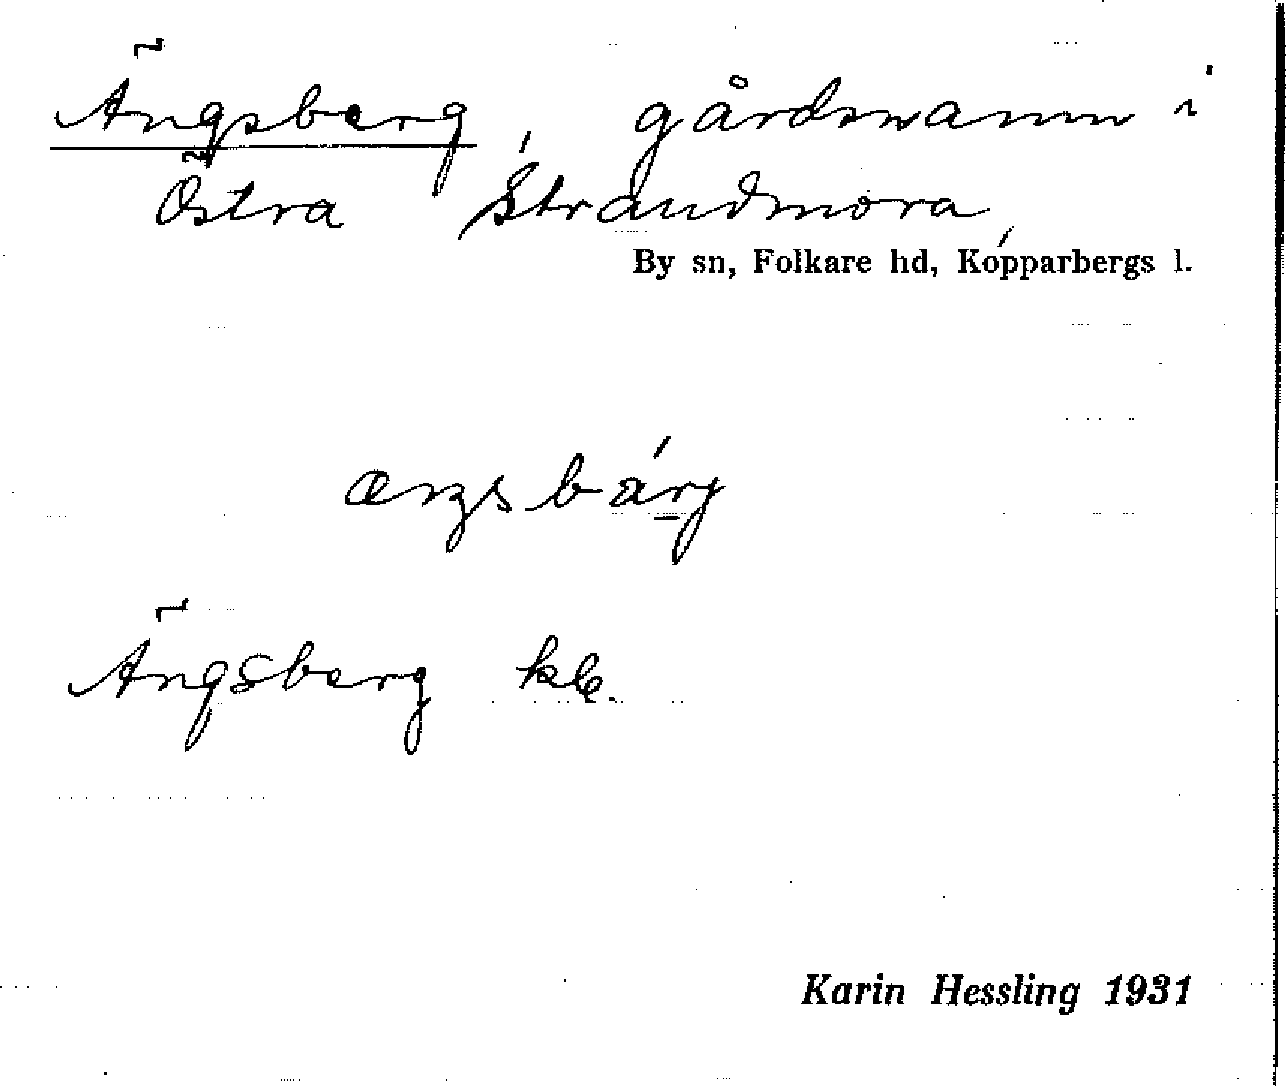 Ängsberg, gårdsnamn i
Östra Strandmora,
By sn, Folkare hd, Kopparbergs l.
æŋsbárj
Ängsberg kk.
Karin Hessling 1931